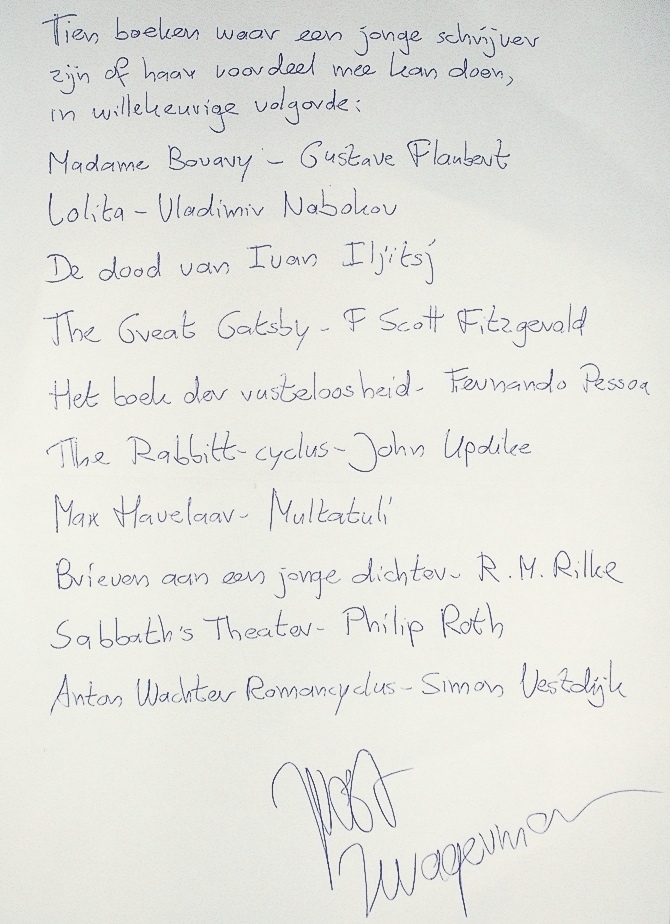 Tien boeken waar een jonge schrijver
zijn of haar voordeel mee kan doen,
in willekeurige volgorde:
Madame Bovary - Gustave Flaubert
Lolita - Vladimir Nabokov
De dood van Ivan Iljitsj
The Great Gatsby - F Scott Fitzgerald
Het boek der rusteloosheid - Fernando Pessoa
The Rabbitt-cyclus - John Updike
Max Havelaar - Multatuli
Brieven aan een jonge dichter - R.M. Rilke
Sabbath's Theater - Philip Roth
Anton Wachter Romancyclus - Simon Vestdijk
Joost
Zwagerman